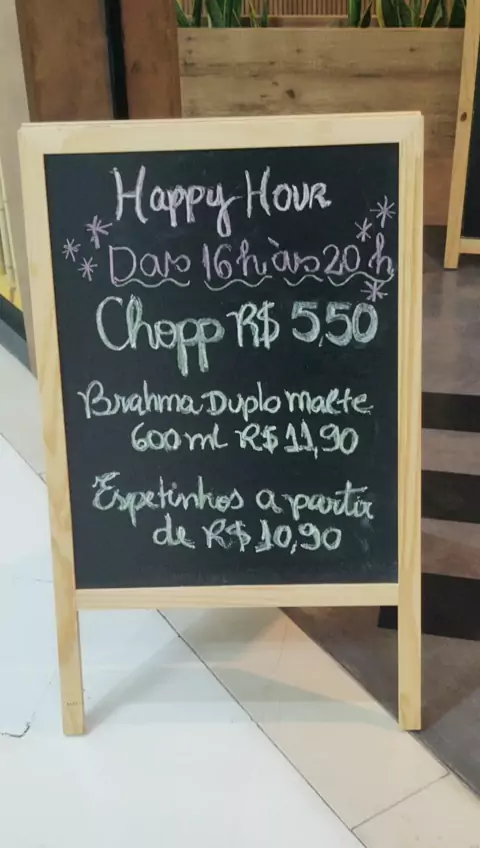 Happy Hour
Das 16h às 20h
Chopp R$ 5,50
Brahma Duplo Malte
600ml R$ 11,90
Espetinhos a partir
de R$ 10,90